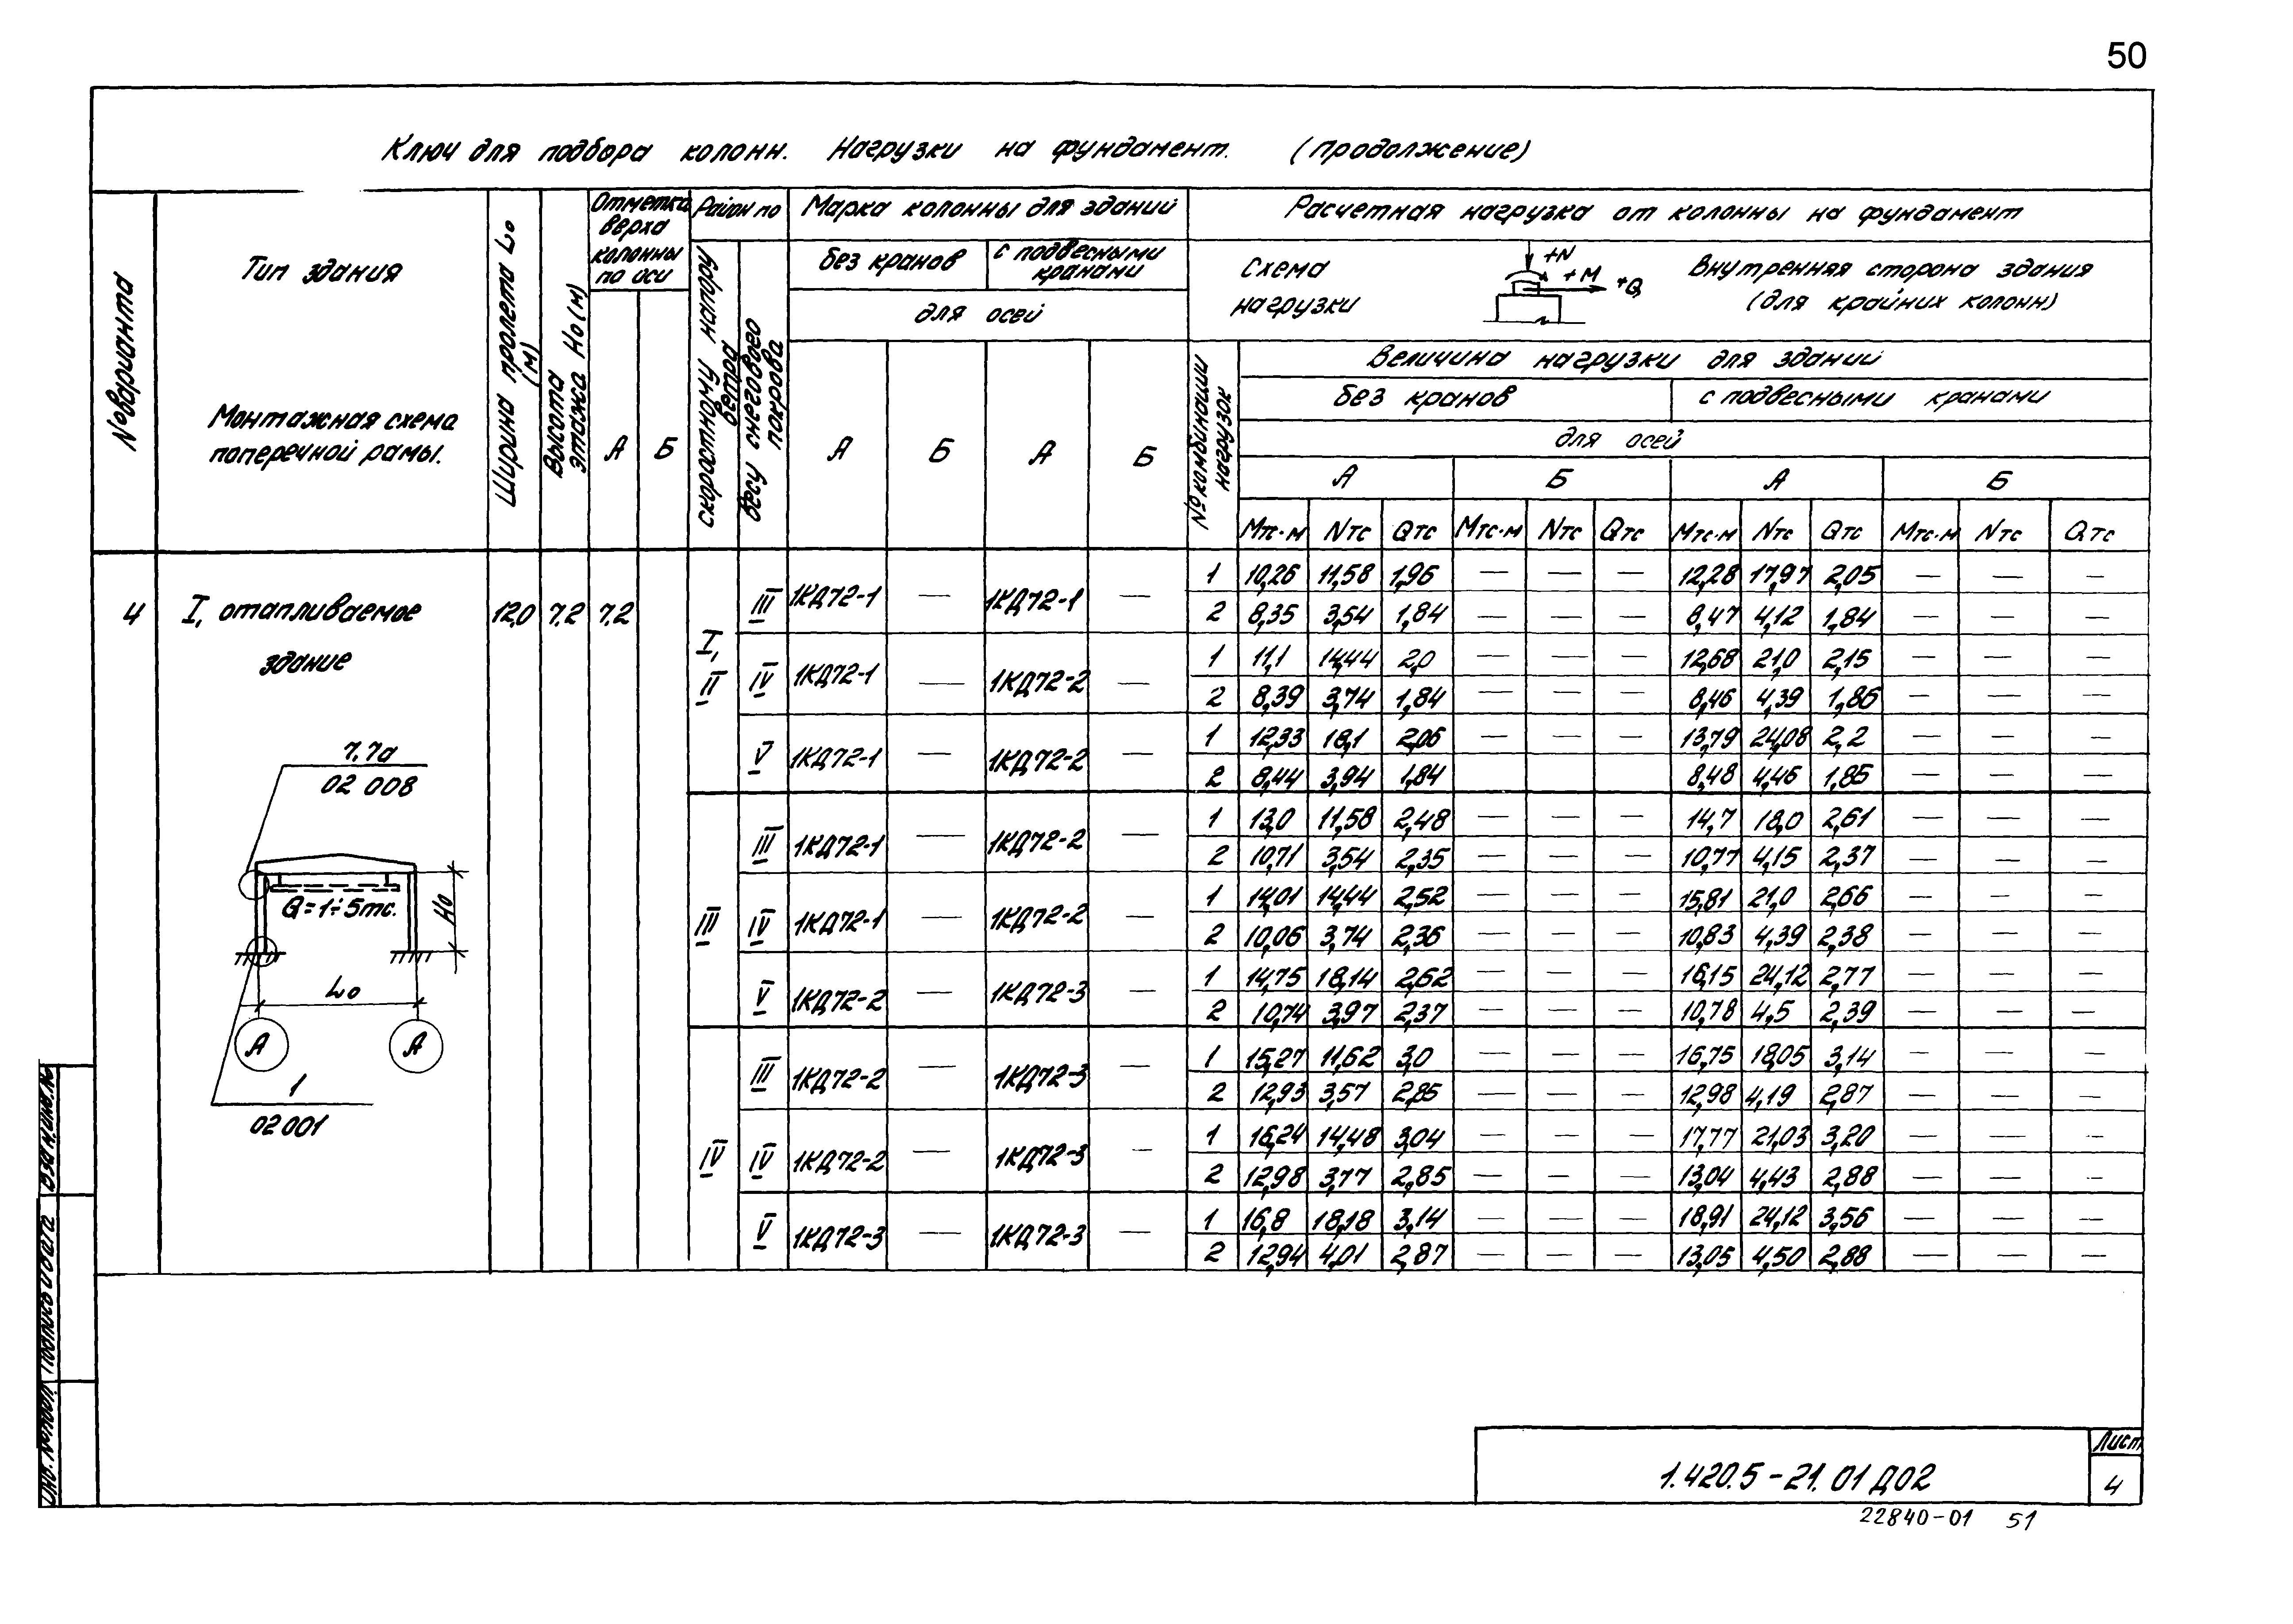 50
Ключ для подбора колонн. Нагрузки на фундамент. (продолжение)
№ варианта
Тип здания
Монтажная схема
поперечной рамы.
Ширина пролета Lо (м)
Высота этажа Но (м)
Отметка верха колонны по оси
А Б
Район по
скоростному напору ветра
весу снегового покрова
Марка колонны для зданий
без кранов с подвесными кранами
для осей
А Б А Б
Расчетная нагрузка от колонны на фундамент
Схема нагрузки
+N
+M
+Q
Внутренняя сторона здания
(для крайних колонн)
№ комбинации нагрузок
Величина нагрузки для зданий
без кранов с подвесными кранами
для осей
А Б А Б
Мтс·м Nтс Qтс Мтс·м Nтс Qтс Мтс·м Nтс Qтс Мтс·м Nтс Qтс
4 I, отапливаемое здание 12,0 7,2 7,2
I, II III 1КД72-1 — 1КД72-1 — 1 10,26 11,58 1,96 — — — 12,28 17,97 2,05 — — —
2 8,35 3,54 1,84 — — — 8,47 4,12 1,84 — — —
IV 1КД72-1 — 1КД72-2 — 1 11,1 14,44 2,0 — — — 12,68 21,0 2,15 — — —
2 8,39 3,74 1,84 — — — 8,46 4,39 1,86 — — —
V 1КД72-1 — 1КД72-2 — 1 12,33 18,1 2,06 — — — 13,79 24,08 2,2 — — —
2 8,44 3,94 1,84 — — — 8,48 4,46 1,85 — — —
III III 1КД72-1 — 1КД72-2 — 1 13,0 11,58 2,48 — — — 14,7 18,0 2,61 — — —
2 10,71 3,54 2,35 — — — 10,77 4,15 2,37 — — —
IV 1КД72-1 — 1КД72-2 — 1 14,01 14,44 2,52 — — — 15,81 21,0 2,66 — — —
2 10,06 3,74 2,36 — — — 10,83 4,39 2,38 — — —
V 1КД72-2 — 1КД72-3 — 1 14,75 18,14 2,62 — — — 16,15 24,12 2,77 — — —
2 10,74 3,97 2,37 — — — 10,78 4,5 2,39 — — —
IV III 1КД72-2 — 1КД72-3 — 1 15,27 11,62 3,0 — — — 16,75 18,05 3,14 — — —
2 12,93 3,57 2,85 — — — 12,98 4,19 2,87 — — —
IV 1КД72-2 — 1КД72-3 — 1 16,24 14,48 3,04 — — — 17,77 21,03 3,20 — — —
2 12,98 3,77 2,85 — — — 13,04 4,43 2,88 — — —
V 1КД72-3 — 1КД72-3 — 1 16,8 18,18 3,14 — — — 18,91 24,12 3,56 — — —
2 12,94 4,01 2,87 — — — 13,05 4,50 2,88 — — —
7,7а
02 008
Q=1÷5тс.
Но
Lо
А А
1
02 001
Взам. инв. №
Подпись и дата
Инв. № подл.
1.420.5-21.01Д02
Лист
4
22840-01 51